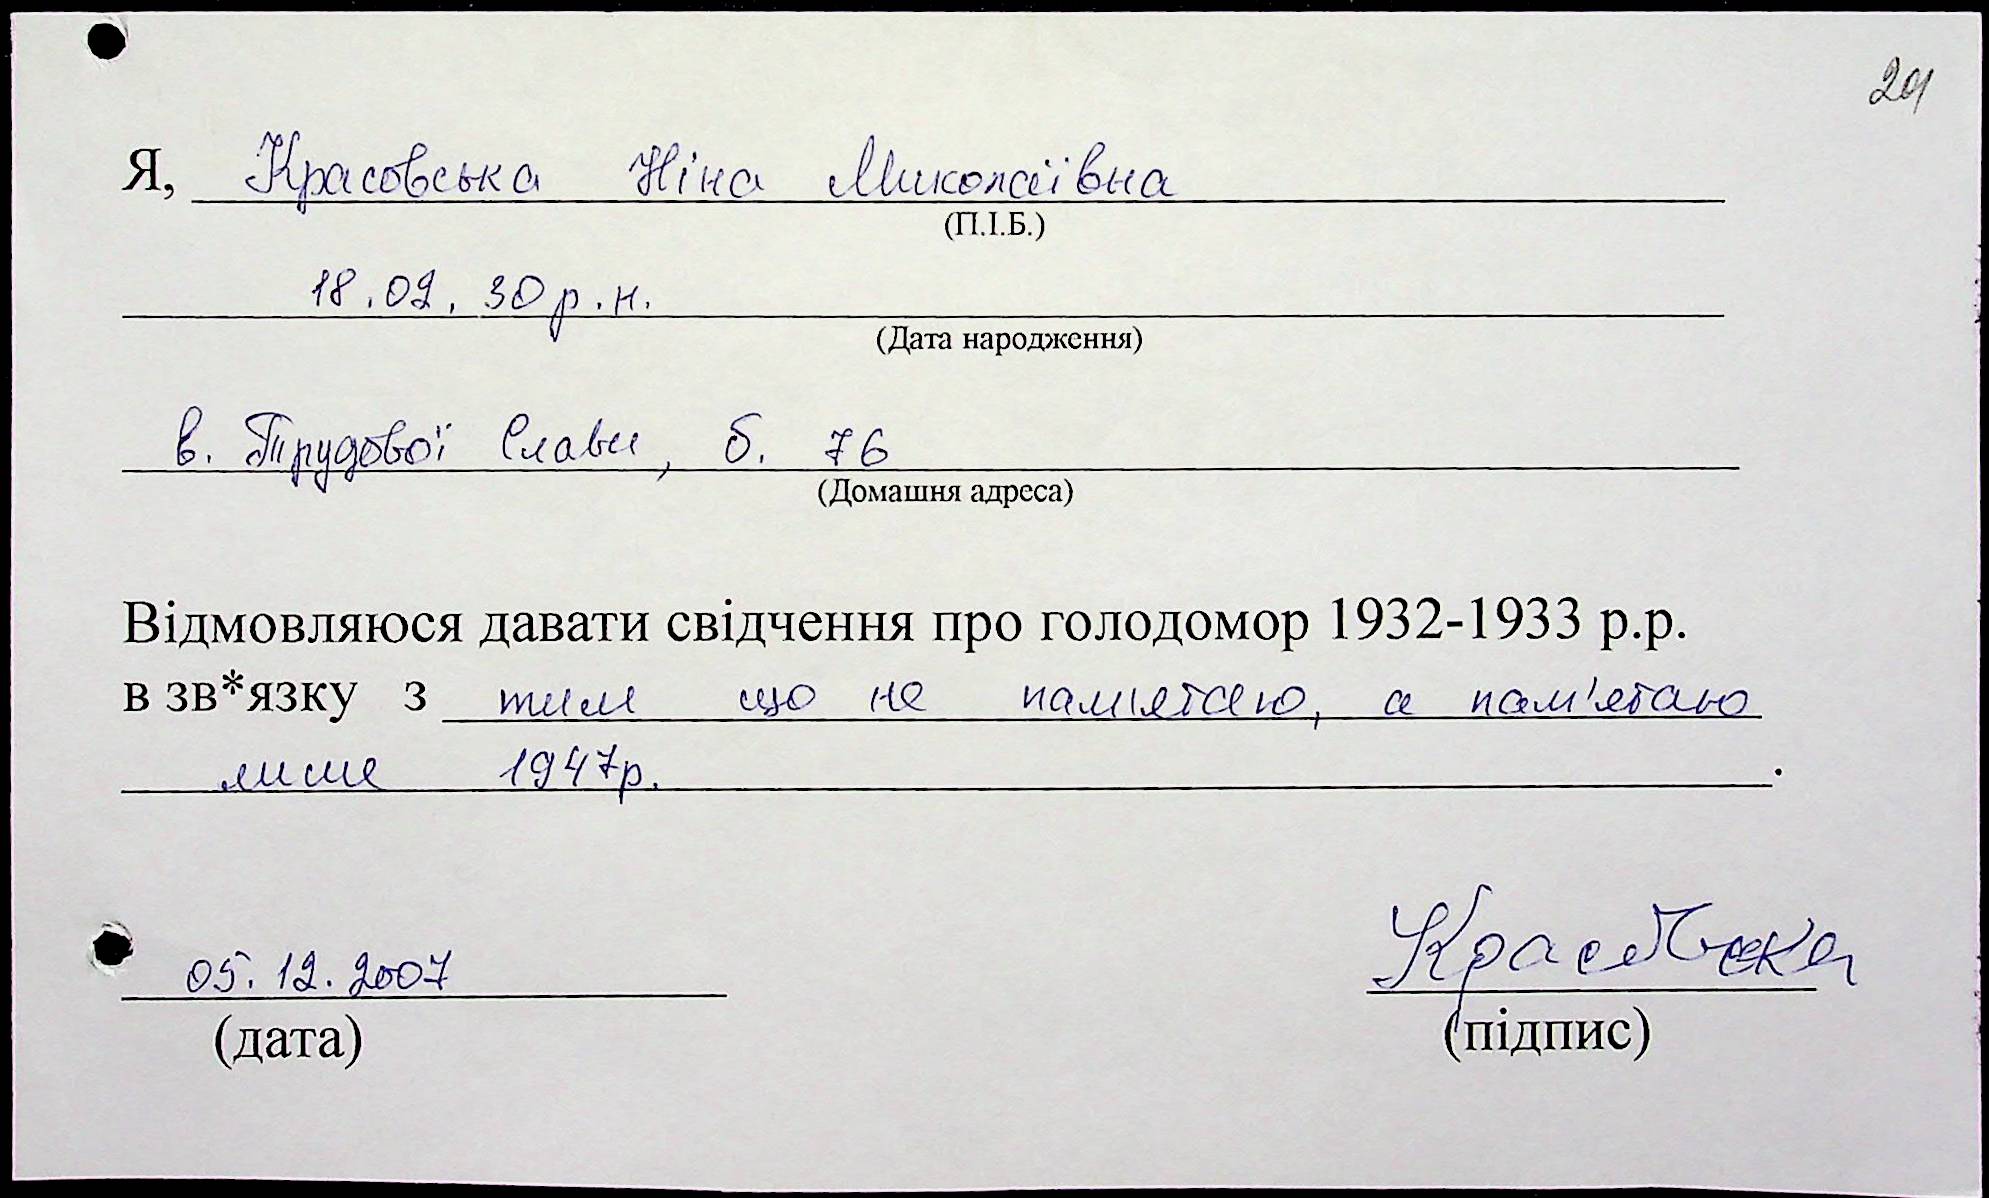 29
Я, Красовська Ніна Миколаївна
(П.І.Б.)
18.02.30 р.н.
(Дата народження)
в. Трудової Слави, б. 76
(Домашня адреса)
Відмовляюся давати свідчення про голодомор 1932-1933 р.р.
в зв*язку з тим що не пам'ятаю, а пам'ятаю
лише 1947р.
.
05.12.2007
Красовська
(дата)
(підпис)